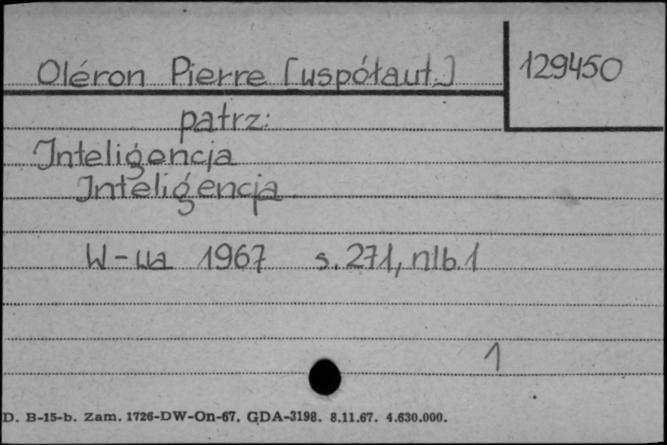 Oléron Pierre [współaut.]
129450
patrz:
Inteligencja
Inteligencja
W-wa 1967 s. 271, nlb. 1
1
D. B-15-b. Zam. 1726-DW-On-67. GDA-3198. 8.11.67. 4.630.000.